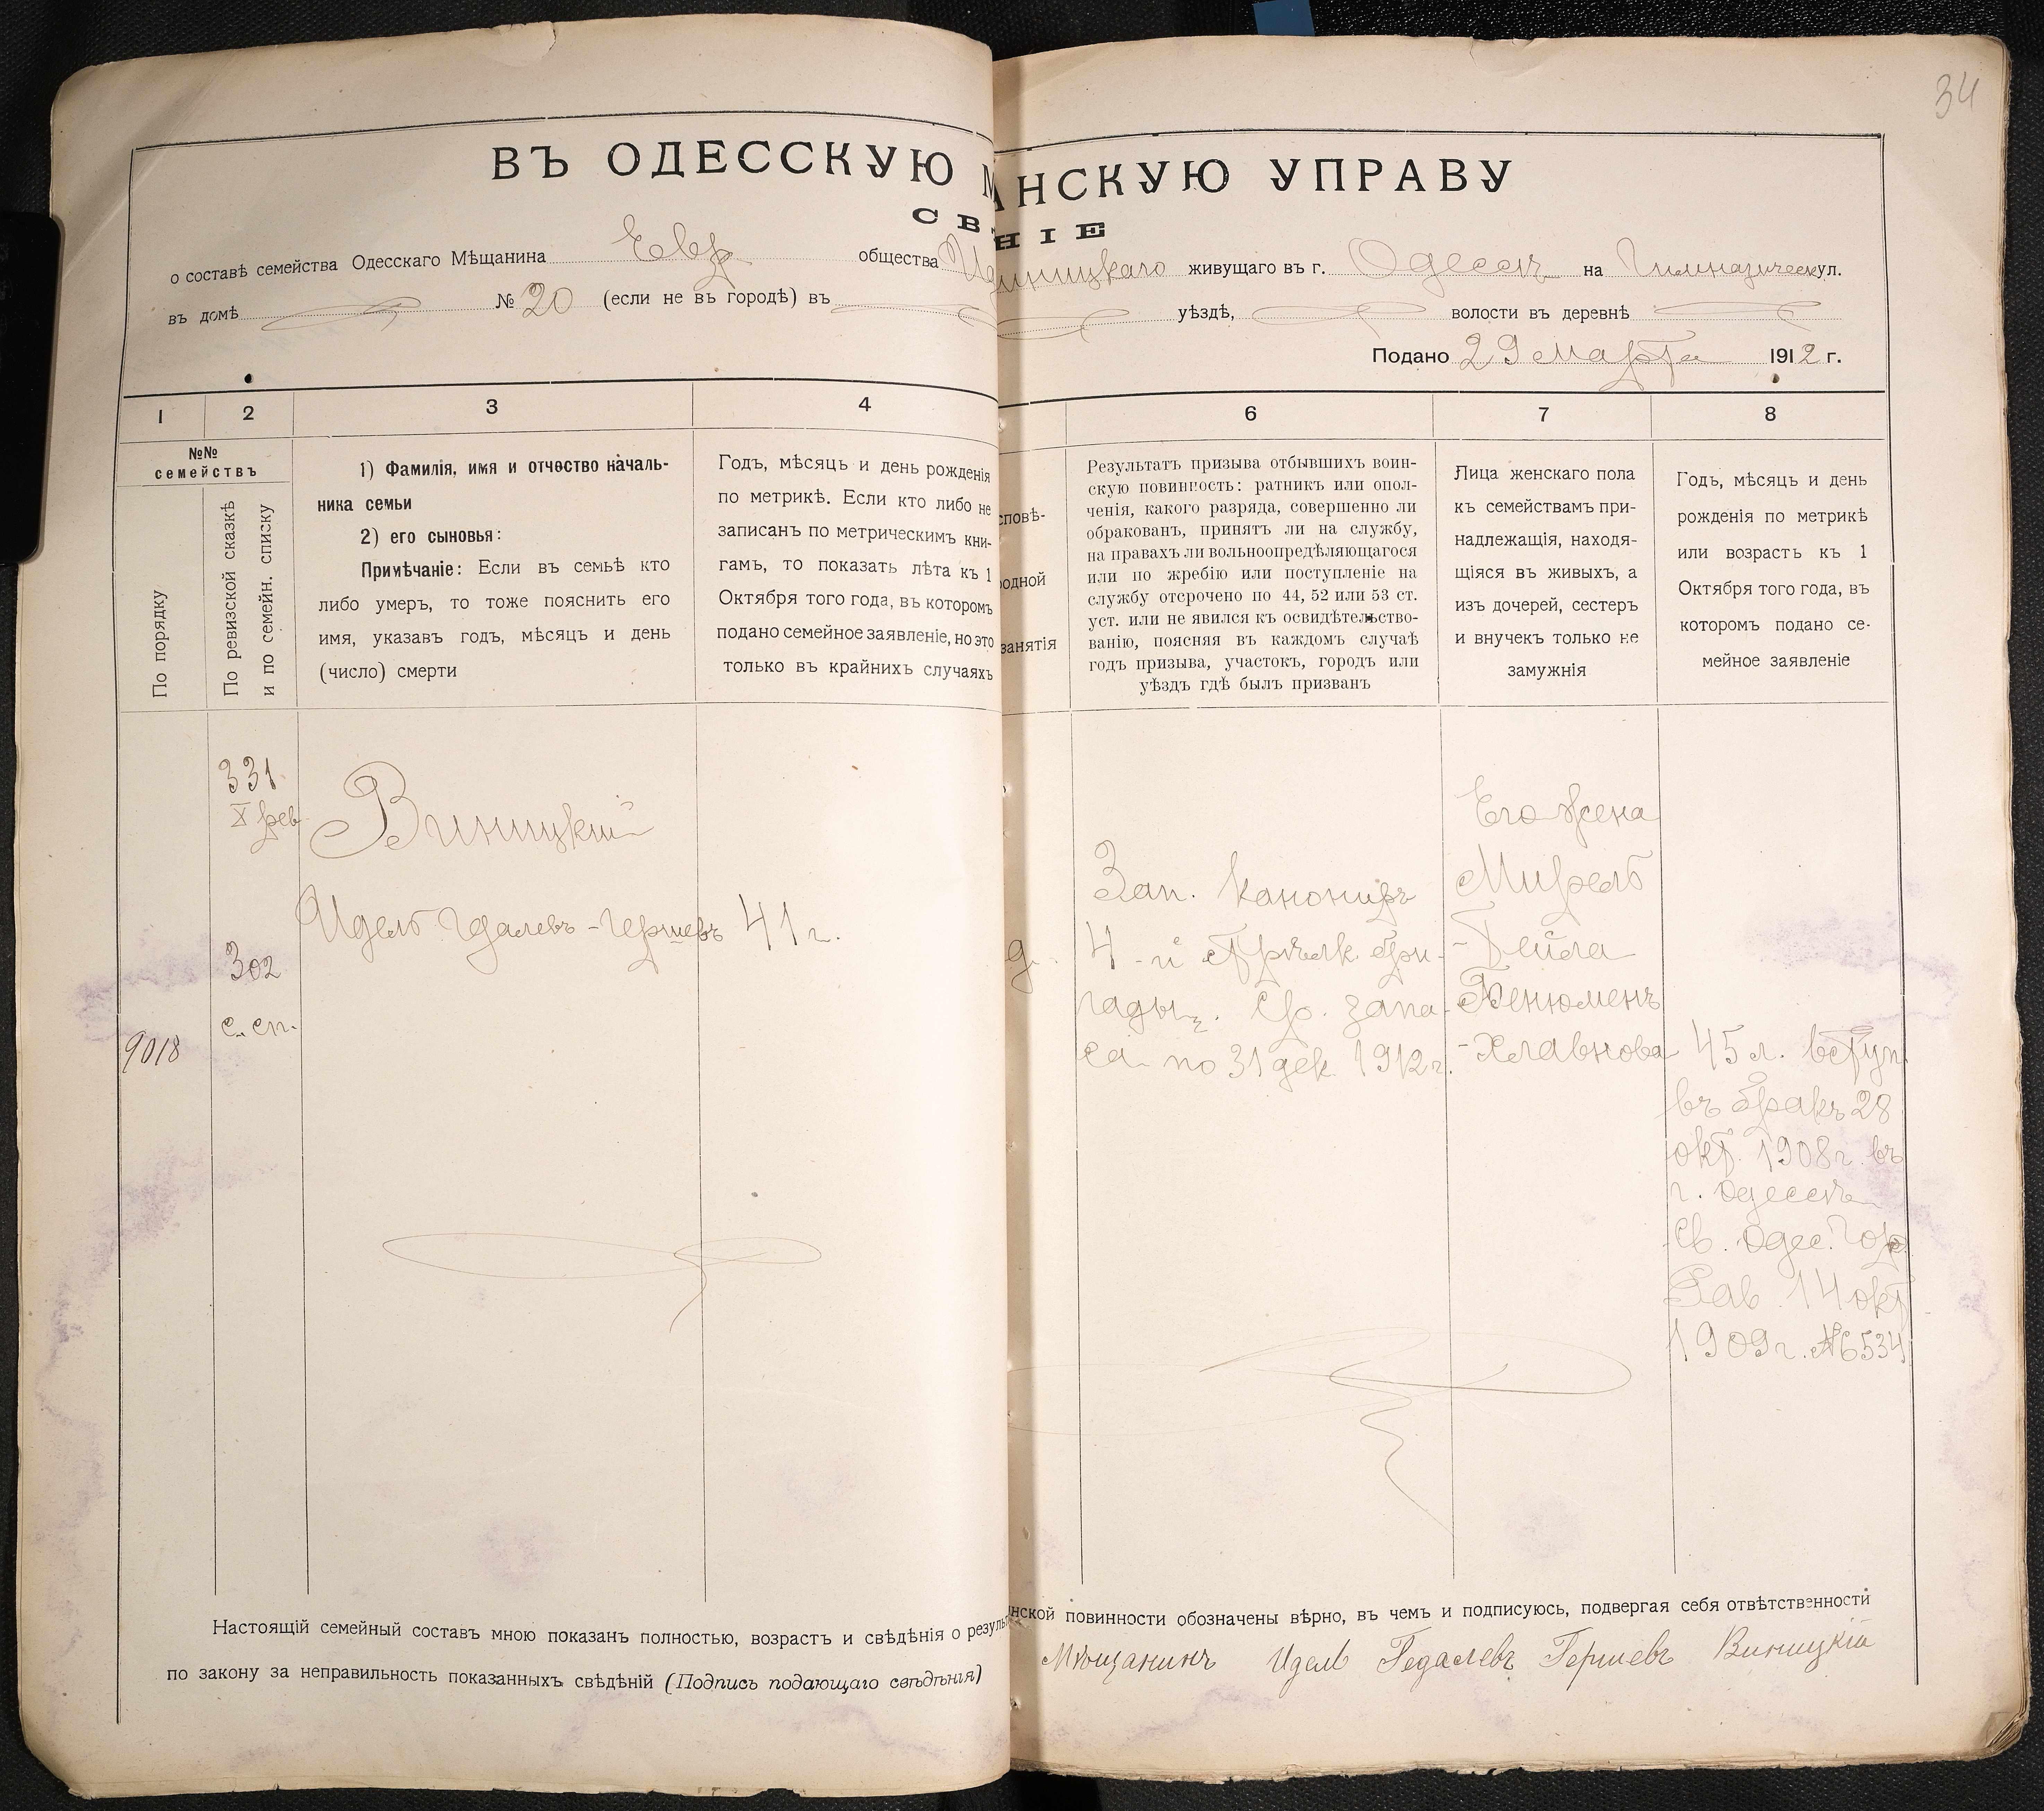 34
ВЪ ОДЕССКУЮ М АНСКУЮ УПРАВУ
СВ НІЕ
о составѣ семейства Одесскаго Мѣщанина Евр общества Виницкаго живущаго въ г. Одессѣ на Гимназическ ул.
въ домѣ № 20 (если не въ городѣ) въ уѣздѣ, волости въ деревнѣ
Подано 29 Марта 1912 г.
1 2 3 4 6 7 8
№№
семействъ
По порядку
По ревизской сказкѣ
и по семейн. списку
1) Фамилія, имя и отчество началь-
ника семьи
2) его сыновья:
Примѣчаніе: Если въ семьѣ кто
либо умеръ, то тоже пояснить его
имя, указавъ годъ, мѣсяцъ и день
(число) смерти
Годъ, мѣсяцъ и день рожденія
по метрикѣ. Если кто либо не
записанъ по метрическимъ кни-
гамъ, то показать лѣта къ 1
Октября того года, въ которомъ
подано семейное заявленіе, но это
только въ крайнихъ случаяхъ
сповѣ-
одной
занятія
Результатъ призыва отбывшихъ воин-
скую повинность: ратникъ или опол-
ченія, какого разряда, совершенно ли
обракованъ, принятъ ли на службу,
на правахъ ли вольноопредѣляющагося
или по жребію или поступленіе на
службу отсрочено по 44, 52 или 53 ст.
уст. или не явился къ освидѣтельство-
ванію, поясняя въ каждомъ случаѣ
годъ призыва, участокъ, городъ или
уѣздъ гдѣ былъ призванъ
Лица женскаго пола
къ семействамъ при-
надлежащія, находя-
щіяся въ живыхъ, а
изъ дочерей, сестеръ
и внучекъ только не
замужнія
Годъ, мѣсяцъ и день
рожденія по метрикѣ
или возрастъ къ 1
Октября того года, въ
которомъ подано се-
мейное заявленіе
9018
331
X рев
302
с. сп.
Виницкій
Идель Гдалевъ-Гершевъ
41 г.
Зап. канониръ
4-й стрѣлк. бри-
гады. Ср. запа-
са по 31 дек 1912 г.
Его жена
Мирель
-Бейла
Бенюменъ
-Хлавнова
45 л. вступ.
въ бракъ 28
окт. 1908 г. въ
г. Одессѣ
Св. Одес. Гор.
Рав. 14 окт
1909 г. № 6534
Настоящій семейный составъ мною показанъ полностью, возрастъ и свѣдѣнія о резуль нской повинности обозначены вѣрно, въ чемъ и подписуюсь, подвергая себя отвѣтственности
по закону за неправильность показанныхъ свѣдѣній (Подпись подающаго свѣдѣнія) Мѣщанинъ Идель Гедалевъ Гершевъ Виницкій